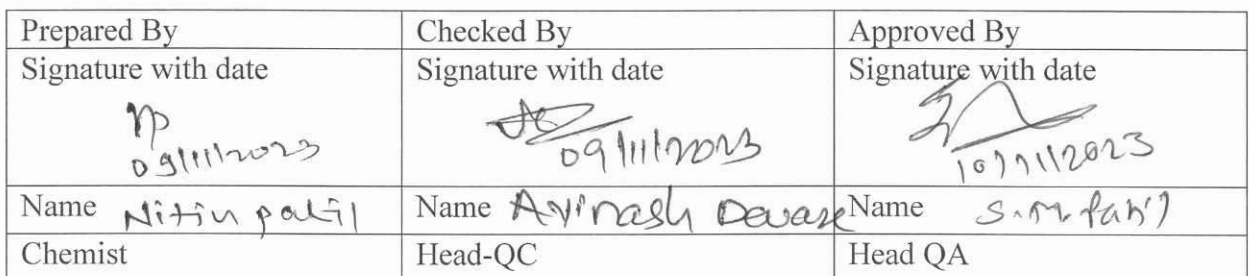 Prepared By Checked By Approved By
Signature with date Signature with date Signature with date
09/11/2023 09/11/2023 10/11/2023
Name Nitin patil Name Avinash Devare Name S.M. Patil
Chemist Head-QC Head QA